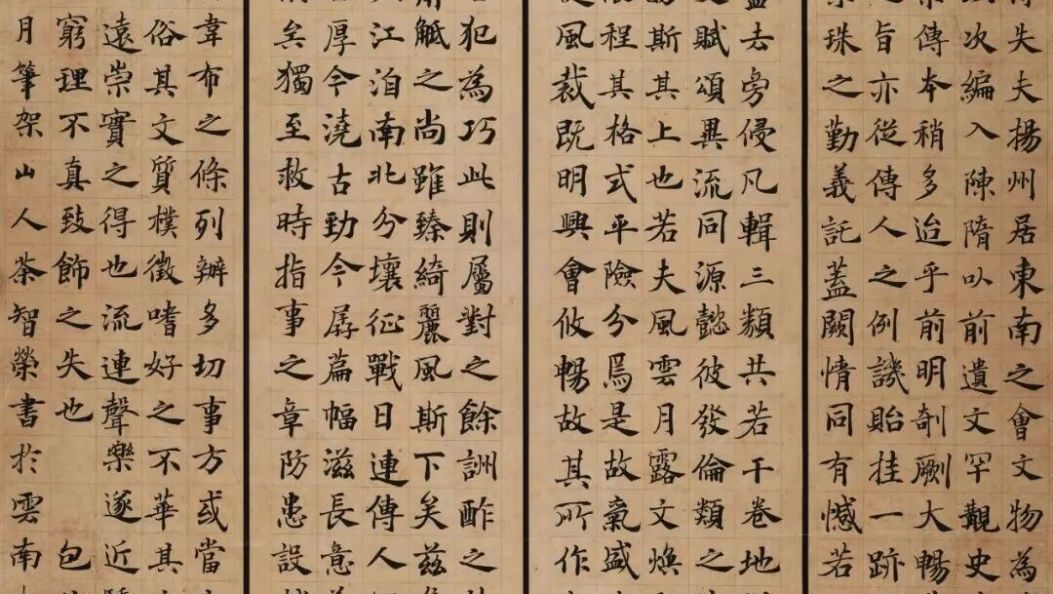 失夫揚州居東南之會文物為
次編入陳隋以前遺文罕觀史
傳本稍多迨乎前明剞劂大暢
旨亦從傳人之例譏貽挂一跡
珠之勤義託蓋闕情同有憾若
去旁侵凡輯三類共若干卷地
賦頌異流同源懿彼發倫類之
斯其上也若夫風雲月露文煥
程其格式平險分焉是故氣盛
風裁既明興會攸暢故其所作
犯為巧此則屬對之餘詶酢之
觝之尚雖臻綺麗風斯下矣茲
江洎南北分壤征戰日連傳人
厚今澆古勁今孱篇幅滋長意
矣獨至救時指事之章防患設
韋布之條列辦多切事方或當
俗其文質樸徵嗜好之不華其
遠崇實之得也流連聲樂遂近
窮理不真致飾之失也 包
月筆架山人茶智榮書於雲南